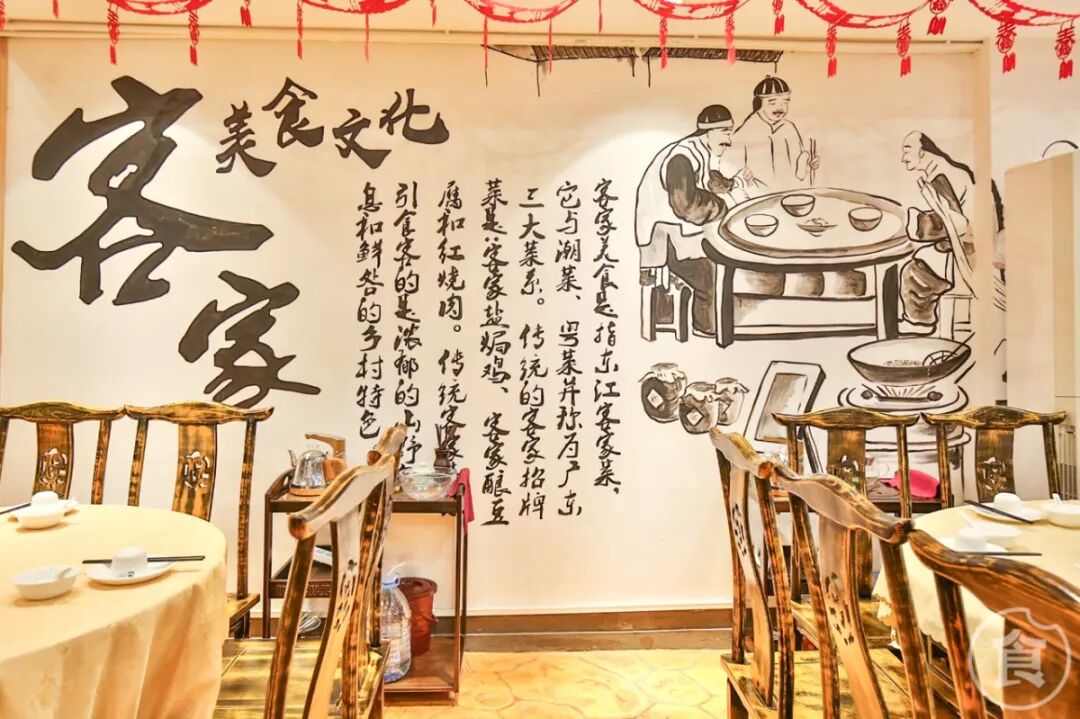 客家
美食文化
客家美食是指东江客家菜,
它与潮菜、粤菜并称为广东
三大菜系。传统的客家招牌
菜是:客家盐焗鸡、客家酿豆
腐和红烧肉。传统客家
引食客的是浓郁的山野
息和鲜咎的乡村特色
食